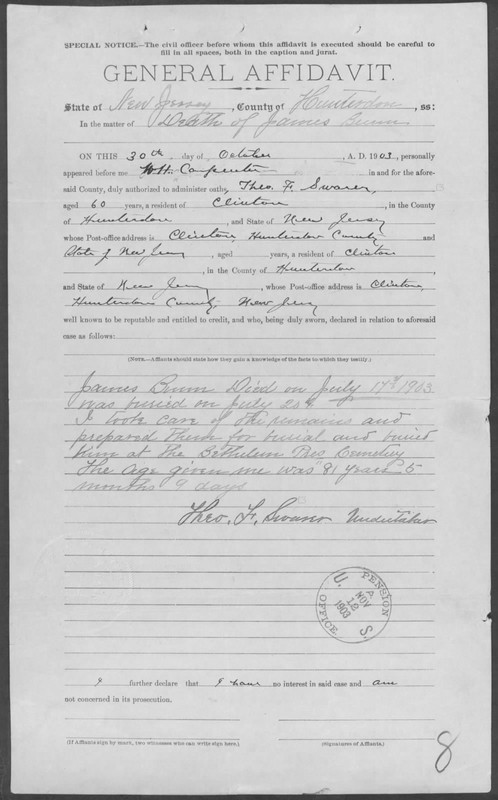 SPECIAL NOTICE.—The civil officer before whom this affidavit is executed should be careful to
fill in all spaces, both in the caption and jurat.
GENERAL AFFIDAVIT.
State of New Jersey, County of Hunterdon, ss:
In the matter of Death of James Bunn
ON THIS 30th day of October, A. D. 1903, personally
appeared before me W. H. Carpenter in and for the afore-
said County, duly authorized to administer oaths, Theo. F. Swarer,
aged 60 years, a resident of Clinton, in the County
of Hunterdon, and State of New Jersey
whose Post-office address is Clinton, Hunterdon County and
State of New Jersey, aged years, a resident of Clinton
, in the County of Hunterdon
and State of New Jersey, whose Post-office address is Clinton,
Hunterdon County, New Jersey
well known to be reputable and entitled to credit, and who, being duly sworn, declared in relation to aforesaid
case as follows:
(NOTE.—Affiants should state how they gain a knowledge of the facts to which they testify.)
James Bunn Died on July 17th 1903
was buried on July 20th
I took care of the remains and
prepared them for burial and buried
him at the Bethlehem Pres Cemetery
The age given me was 81 years 5
months 9 days
Theo. F. Swarer Undertaker
U. S. PENSION OFFICE
NOV 12 1903
I further declare that I have no interest in said case and am
not concerned in its prosecution.
(If Affiants sign by mark, two witnesses who can write sign here.)
(Signatures of Affiants.)
8